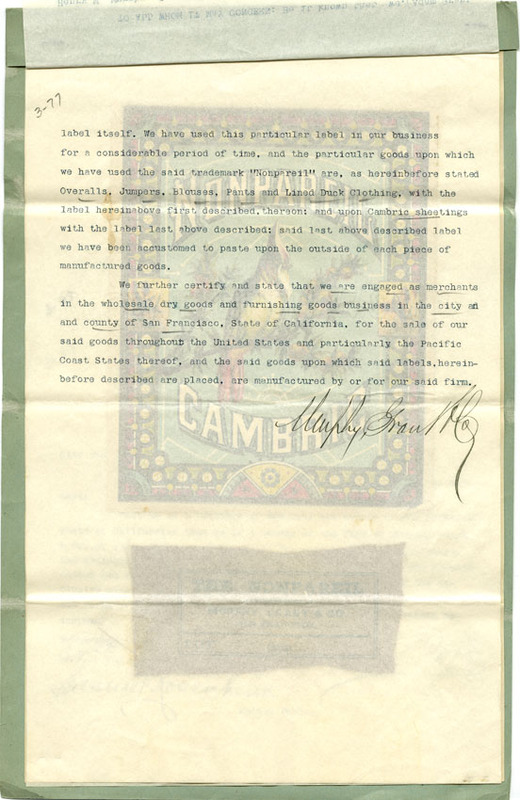 TO ALL WHOM IT MAY CONCERN: Be it known that
3-77
label itself. We have used this particular label in our business
for a considerable period of time, and the particular goods upon which
we have used the said trademark "Nonpareil" are, as hereinbefore stated
Overalls, Jumpers, Blouses, Pants and Lined Duck Clothing, with the
label hereinabove first described,thereon; and upon Cambric sheetings
with the label last above described; said last above described label
we have been accustomed to paste upon the outside of each piece of
manufactured goods.
We further certify and state that we are engaged as merchants
in the wholesale dry goods and furnishing goods business in the city an
and county of San Francisco, State of California, for the sale of our
said goods throughout the United States and particularly the Pacific
Coast States thereof, and the said goods upon which said labels,herein-
before described are placed, are manufactured by or for our said firm.
Murphy, Grant & Co
CAMBRIC
THE NONPAREIL